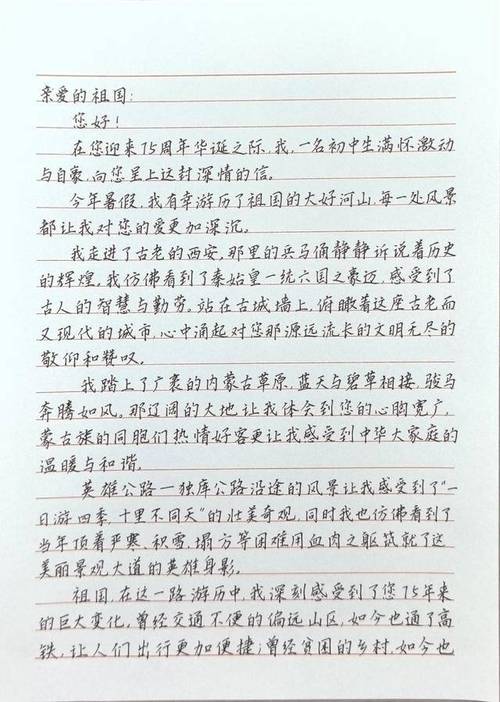 亲爱的祖国:
您好!
在您迎来75周年华诞之际,我,一名初中生满怀激动
与自豪,向您呈上这封深情的信。
今年暑假,我有幸游历了祖国的大好河山,每一处风景
都让我对您的爱更加深沉。
我走进了古老的西安,那里的兵马俑静静诉说着历史
的辉煌。我仿佛看到了秦始皇一统六国之豪迈,感受到了
古人的智慧与勤劳。站在古城墙上,俯瞰着这座古老而
又现代的城市,心中涌起对您那源远流长的文明无尽的
敬仰和赞叹。
我踏上了广袤的内蒙古草原,蓝天与碧草相接,骏马
奔腾如风。那辽阔的大地,让我体会到您的心胸宽广,
蒙古族的同胞们热情好客更让我感受到中华大家庭的
温暖与和谐。
英雄公路一独库公路沿途的风景让我感受到了"一
日游四季,十里不同天"的壮美奇观,同时我也仿佛看到了
当年顶着严寒、积雪、塌方等困难用血肉之躯筑就了这
美丽景观大道的英雄身影。
祖国,在这一路游历中,我深刻感受到了您75年来
的巨大变化,曾经交通不便的偏远山区,如今也通了高
铁,让人们出行更加便捷;曾经贫困的乡村,如今也